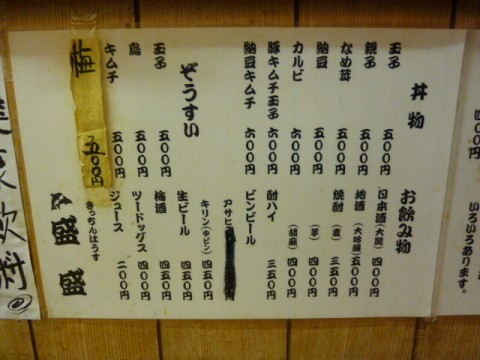 四〇〇円
いろいろあります。
丼物
玉子 五〇〇円
親子 五〇〇円
なめ茸 五〇〇円
納豆 五〇〇円
カルビ 六〇〇円
豚キムチ玉子 六〇〇円
納豆キムチ 六〇〇円
ぞうすい
玉子 五〇〇円
鳥 五〇〇円
キムチ 五〇〇円
五〇〇円
お飲み物
日本酒(大関) 四〇〇円
地酒(大吟醸) 五〇〇円
焼酎(麦) 三五〇円
(芋) 四〇〇円
(胡麻) 四〇〇円
酎ハイ 三五〇円
ビンビール
アサヒ
キリン(中ビン) 四五〇円
生ビール 四五〇円
梅酒 四〇〇円
ツードッグス 四〇〇円
ジュース 二〇〇円
きっちんはうす
盛盛
飲料